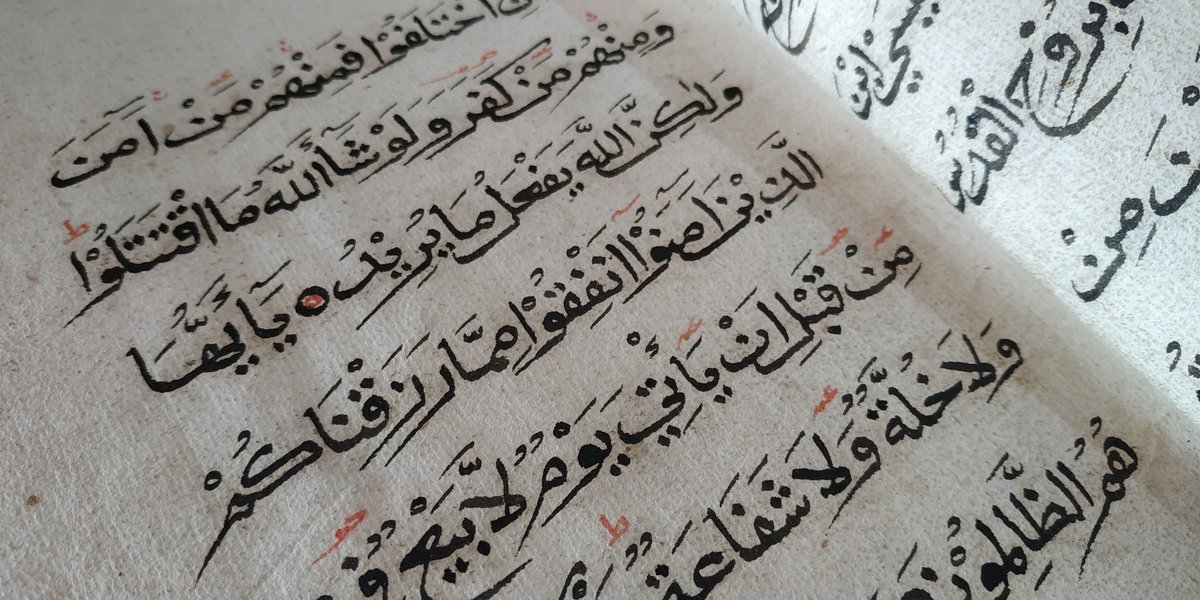 اخْتَلَفُوْا فَمِنْهُمْ مَنْ اٰمَنَ
وَمِنْهُمْ مَنْ كَفَرَ وَلَوْ شَآءَ اللّٰهُ مَا اقْتَتَلُوْا
وَلٰكِنَّ اللّٰهَ يَفْعَلُ مَا يُرِيْدُ يَآ اَيُّهَا
الَّذِيْنَ اٰمَنُوْا اَنْفِقُوْا مِمَّا رَزَقْنَاكُمْ
مِنْ قَبْلِ اَنْ يَأْتِيَ يَوْمٌ لَا بَيْعٌ فِ
وَلَا خُلَّةٌ وَلَا شَفَاعَةٌ
هُمُ الظَّالِمُوْنَ
بِرُوْحِ الْقُدُسِ
مِنْ